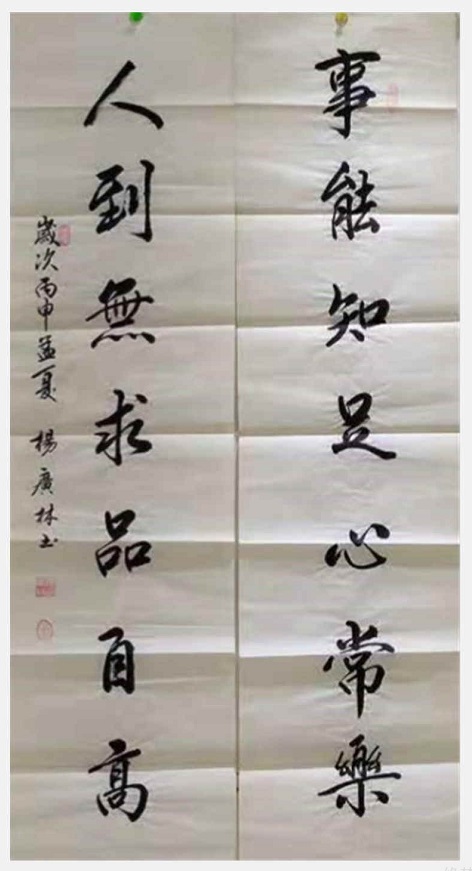 事能知足心常樂
人到無求品自高
歲次丙申孟夏 楊廣林书